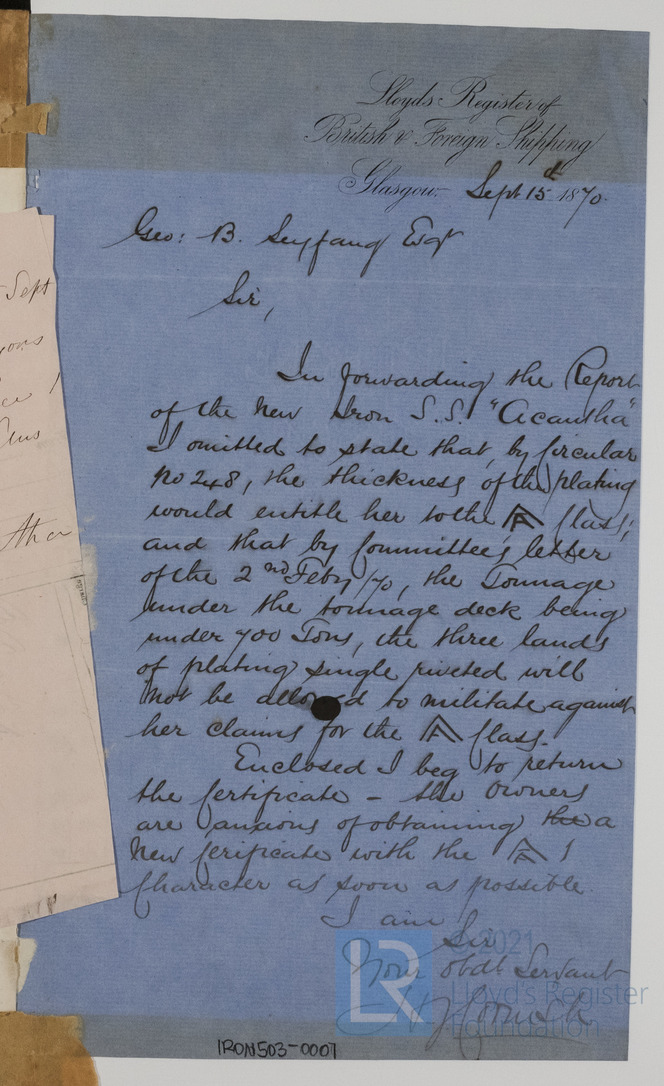 Lloyds Register of
British & Foreign Shipping
Glasgow Sept 15th 1870.
Geo: B. Seyfang Esqr
Sir,
In forwarding the Report
of the new Iron S.S. "Acantha"
I omitted to state that, by Circular
No 248, the thickness of the plating
would entitle her to the A Class;
and that by Committee's letter
of the 2nd Feby /70, the Tonnage
under the tonnage deck being
under 700 Tons, the three lands
of plating single riveted will
not be allowed to militate against
her claims for the A Class.
Enclosed I beg to return
the Certificate - the Owners
are anxious of obtaining the a
new Cerificate with the A 1
Character as soon as possible.
I am
Sir
Your obdt Servant
Sept
Ather
IRON503-0007
LR
© 2021
Lloyd's Register
Foundation